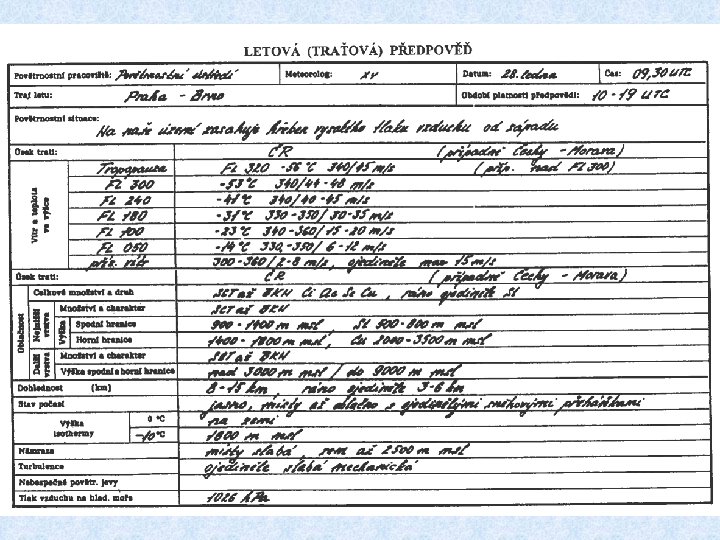 LETOVÁ (TRAŤOVÁ) PŘEDPOVĚĎ
Povětrnostní pracoviště: Povětrnostní ústředí Meteorolog: XY Datum: 28. ledna Čas: 09,30 UTC
Trať letu: Praha - Brno Období platnosti předpovědi: 10 - 19 UTC
Povětrnostní situace:
Na naše území zasahuje hřeben vysokého tlaku vzduchu od západu
Úsek trati: ČR (případně Čechy - Morava)
Vítr a teplota ve výšce
Tropopauza FL 320 -56°C 340/45 m/s (příp. nad FL 300)
FL 300 -53°C 340/44-48 m/s
FL 240 -41°C 340/40-45 m/s
FL 180 -31°C 330-350/30-35 m/s
FL 100 -23°C 340-360/15-20 m/s
FL 050 -14°C 330-350/6-12 m/s
příz. vítr 300-360/2-8 m/s, ojediněle max 15 m/s
Úsek trati: ČR (případně Čechy - Morava)
Oblačnost
Celkové množství a druh SCT až BKN Ci Ac Sc Cu, ráno ojediněle St
Nejnižší vrstva
Množství a charakter SCT až BKN
Výška
Spodní hranice 900-1400 m msl St 500-800 m msl
Horní hranice 1400-1800 m msl, Cu 2000-3500 m msl
Další vrstva
Množství a charakter SCT až BKN
Výška spodní a horní hranice nad 3000 m msl / do 9000 m msl
Dohlednost (km) 8-15 km ráno ojediněle 3-6 km
Stav počasí jasno, místy až oblačno s ojedinělými sněhovými přeháňkami
Výška isothermy 0 °C na zemi
-10°C 1800 m msl
Námraza místy slabá, zem až 2500 m msl
Turbulence ojediněle slabá mechanická
Nebezpečné povětr. jevy
Tlak vzduchu na hlad. moře 1026 hPa